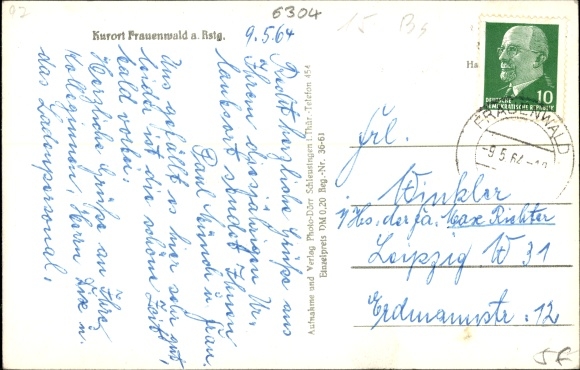 6304
Kurort Frauenwald a. Rstg.
9.5.64
Recht herzliche Grüße aus
Ihrem diesjährigen Ur-
laubsort sendet Ihnen
Paul Münch u. Frau.
Uns gefällt es hier sehr gut,
leider ist die schöne Zeit
bald vorbei.
Herzliche Grüße an Ihre
Kolleginnen, Herrn u.
das Ladenpersonal.
Aufnahme und Verlag Photo-Dörr Schleusingen i. Thür. Telefon 454
Einzelpreis DM 0,20 Beg.-Nr. 36-61
DEUTSCHE
DEMOKRATISCHE REPUBLIK
10
FRAUENWALD
-9.5.64-
Frl.
Winkler
i/Hs. der Fa. Max Richter
Leipzig W 31
Erdmannstr. 12